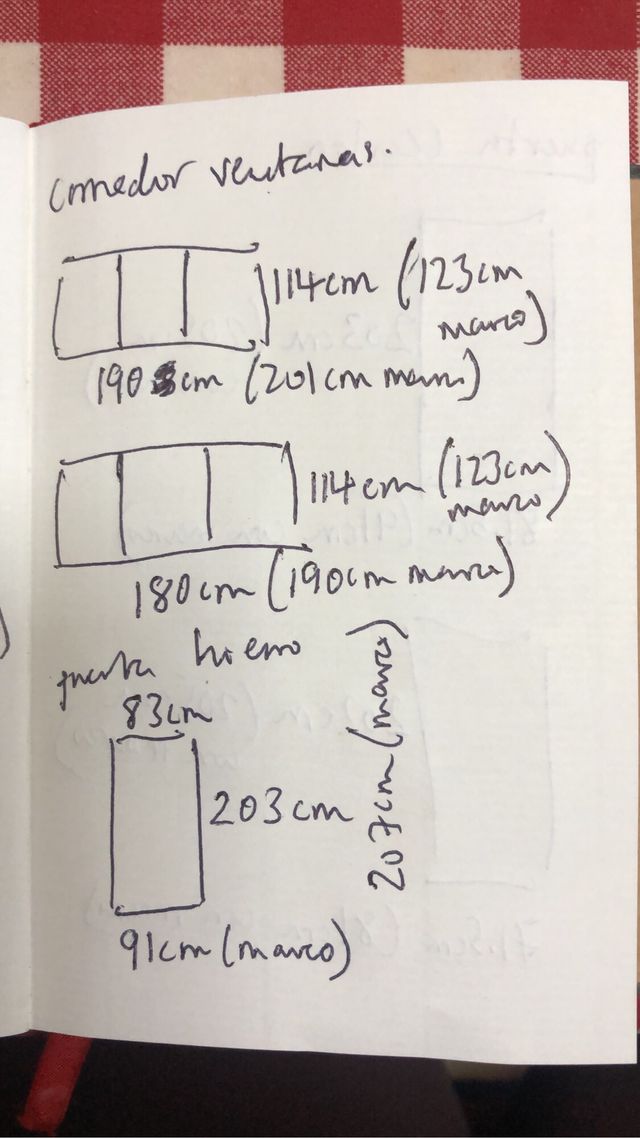 comedor ventanas.
114cm (123cm
marco)
190 cm (201cm marco)
114cm (123cm
marco)
180cm (190cm marco)
puerta hierro
83cm
203cm
207cm (marco)
91cm (marco)